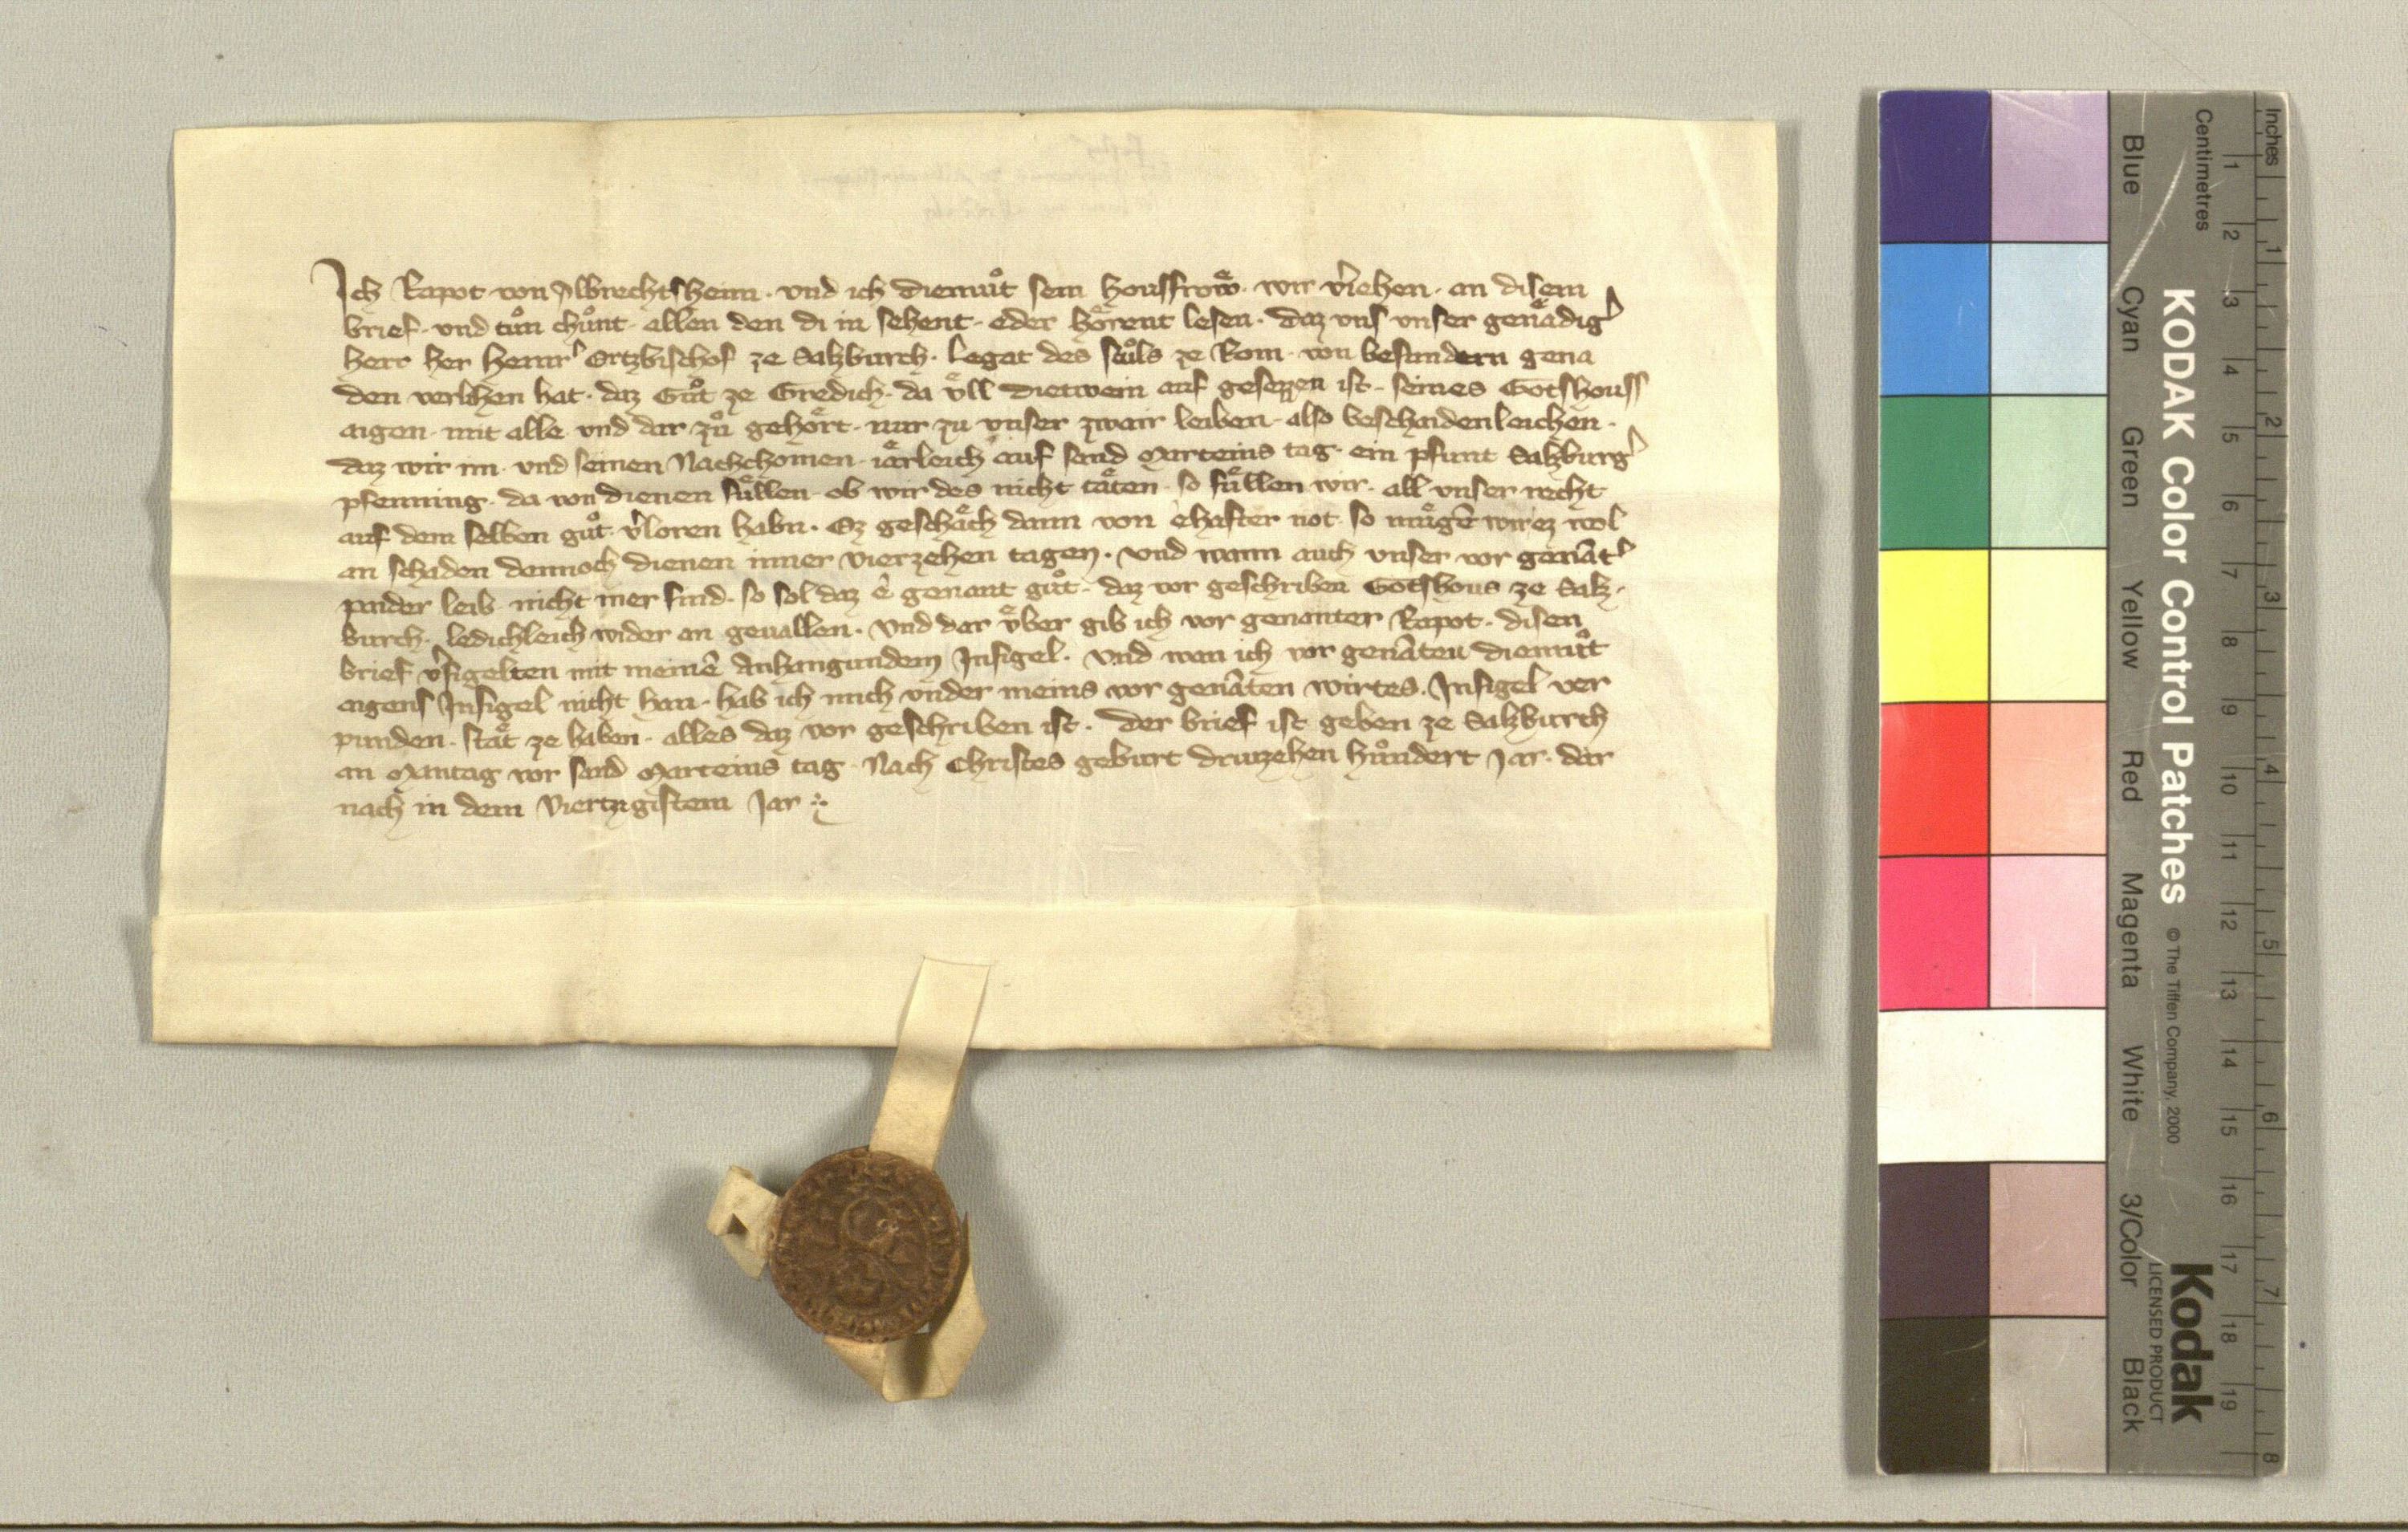 Ich Rapot von Albrechtshaim · vnd ich Diemuͦt sein housfrowͤ · wir v̾iehen · an disem
brief · vnd tuͦn chuͦnt · allen den di in sehent · oder hoͤrent lesen · daz vns vnser genaͤdig̾
herr her Heinr̾ Ertzbischof ze Salzburch · Legat des stuͦls ze Rom · von besundern gena
den verlihen hat · daz Guͦt ze Gredich · da vͤll Dietwein auf gesezzen ist · seines Gotshouss
aigen · mit alle vnd dar zuͦ gehoͤrt · nur zu vnser zwair leiben · also beschaidenleichen ·
daz wir im · vnd seinen Nachchomen · iaͤrleich auf sand Marteins tag · ein pfunt Salzburg̾
pfenning · da von dienen suͤllen · ob wir des nicht taͤten · so suͤllen wir · all vnser recht
auf dem selben guͦt · v̾loren habn · Ez geschaͤch dann von ehafter not · so muͤgē wir ez wol
an schaden dannoch dienen inner vierzehen tagen · vnd wann auch vnser vor genāt̾
paider leib · nicht mer sind · so sol daz ê genant guͦt · daz vor geschriben Gotshous ze Salz ·
burch · ledichleich wider an geuallen · vnd dar vͤber gib ich vor genanter Rapot · disen
brief v̾sigelten mit meinē Anhangundem Insigel · vnd wan ich vor genāteu Diemuͦt
aigens Insigel nicht han · hab ich mich vnder meins vor genāten wirtes · Insigel ver
punden · staͤt ze haben · alles daz vor geschriben ist · Der brief ist geben ze Salzburch
an Mantag vor sand Marteins tag · Nach Christes geburt druizehen huͦndert Jar · dar
nach in dem Viertzigistem Jar
KODAK Color Control Patches © The Tiffen Company, 2000
Kodak
LICENSED PRODUCT
Blue Cyan Green Yellow Red Magenta White 3/Color Black
Centimetres 1 2 3 4 5 6 7 8 9 10 11 12 13 14 15 16 17 18 19
Inches 1 2 3 4 5 6 7 8